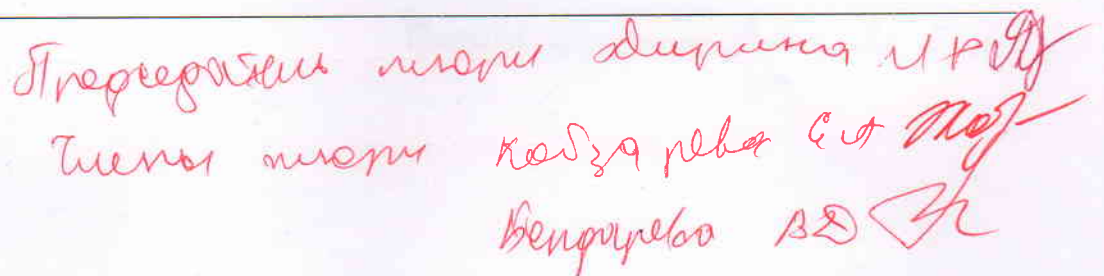 Председатель жюри И Р
Члены жюри Кобзарева Е А
Бендарева В Д